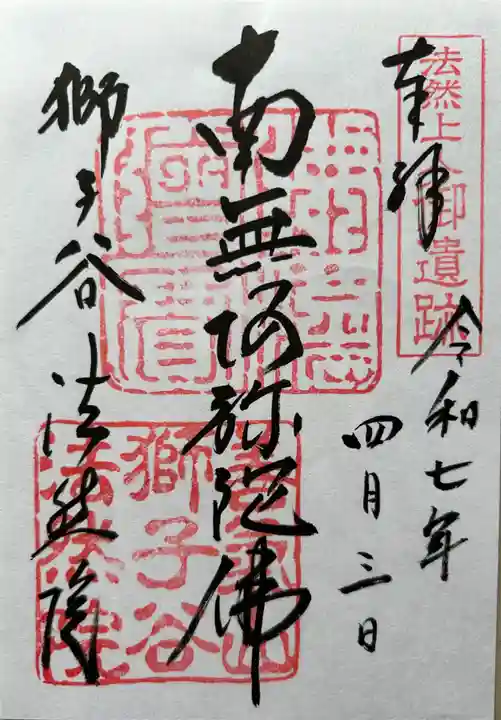 奉拝
法然上人御遺跡
令和七年
四月三日
南無阿弥陀佛
獅子谷法然院
獅子谷
法然院